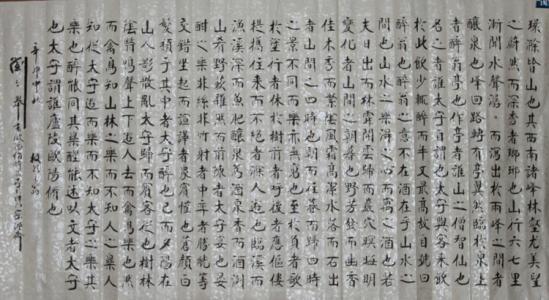 環滁皆山也其西南諸峰林壑尤美望
之蔚然而深秀者瑯琊也山行六七里
漸聞水聲潺潺而瀉出於兩峰之間者
釀泉也峰回路轉有亭翼然臨於泉上
者醉翁亭也作亭者誰山之僧智仙也
名之者誰太守自謂也太守與客來飲
於此飲少輒醉而年又最高故自號曰
醉翁也醉翁之意不在酒在乎山水之
間也山水之樂得之心而寓之酒也若
夫日出而林霏開雲歸而巖穴暝晦明
變化者山間之朝暮也野芳發而幽香
佳木秀而繁蔭風霜高潔水落而石出
者山間之四時也朝而往暮而歸四時
之景不同而樂亦無窮也至於負者歌
於塗行者休於樹前者呼後者應傴僂
提攜往來而不絕者滁人遊也臨溪而
漁溪深而魚肥釀泉為酒泉香而酒洌
山肴野蔌雜然而前陳者太守宴也宴
酣之樂非絲非竹射者中弈者勝觥籌
交錯坐起而諠譁者眾賓懽也蒼顏白
髮頹乎其中者太守醉也已而夕陽在
山人影散亂太守歸而賓客從也樹林
陰翳鳴聲上下遊人去而禽鳥樂也然
而禽鳥知山林之樂而不知人之樂人
知從太守遊而樂而不知太守之樂其
樂也醉能同其樂醒能述以文者太守
也太守謂誰廬陵歐陽修也